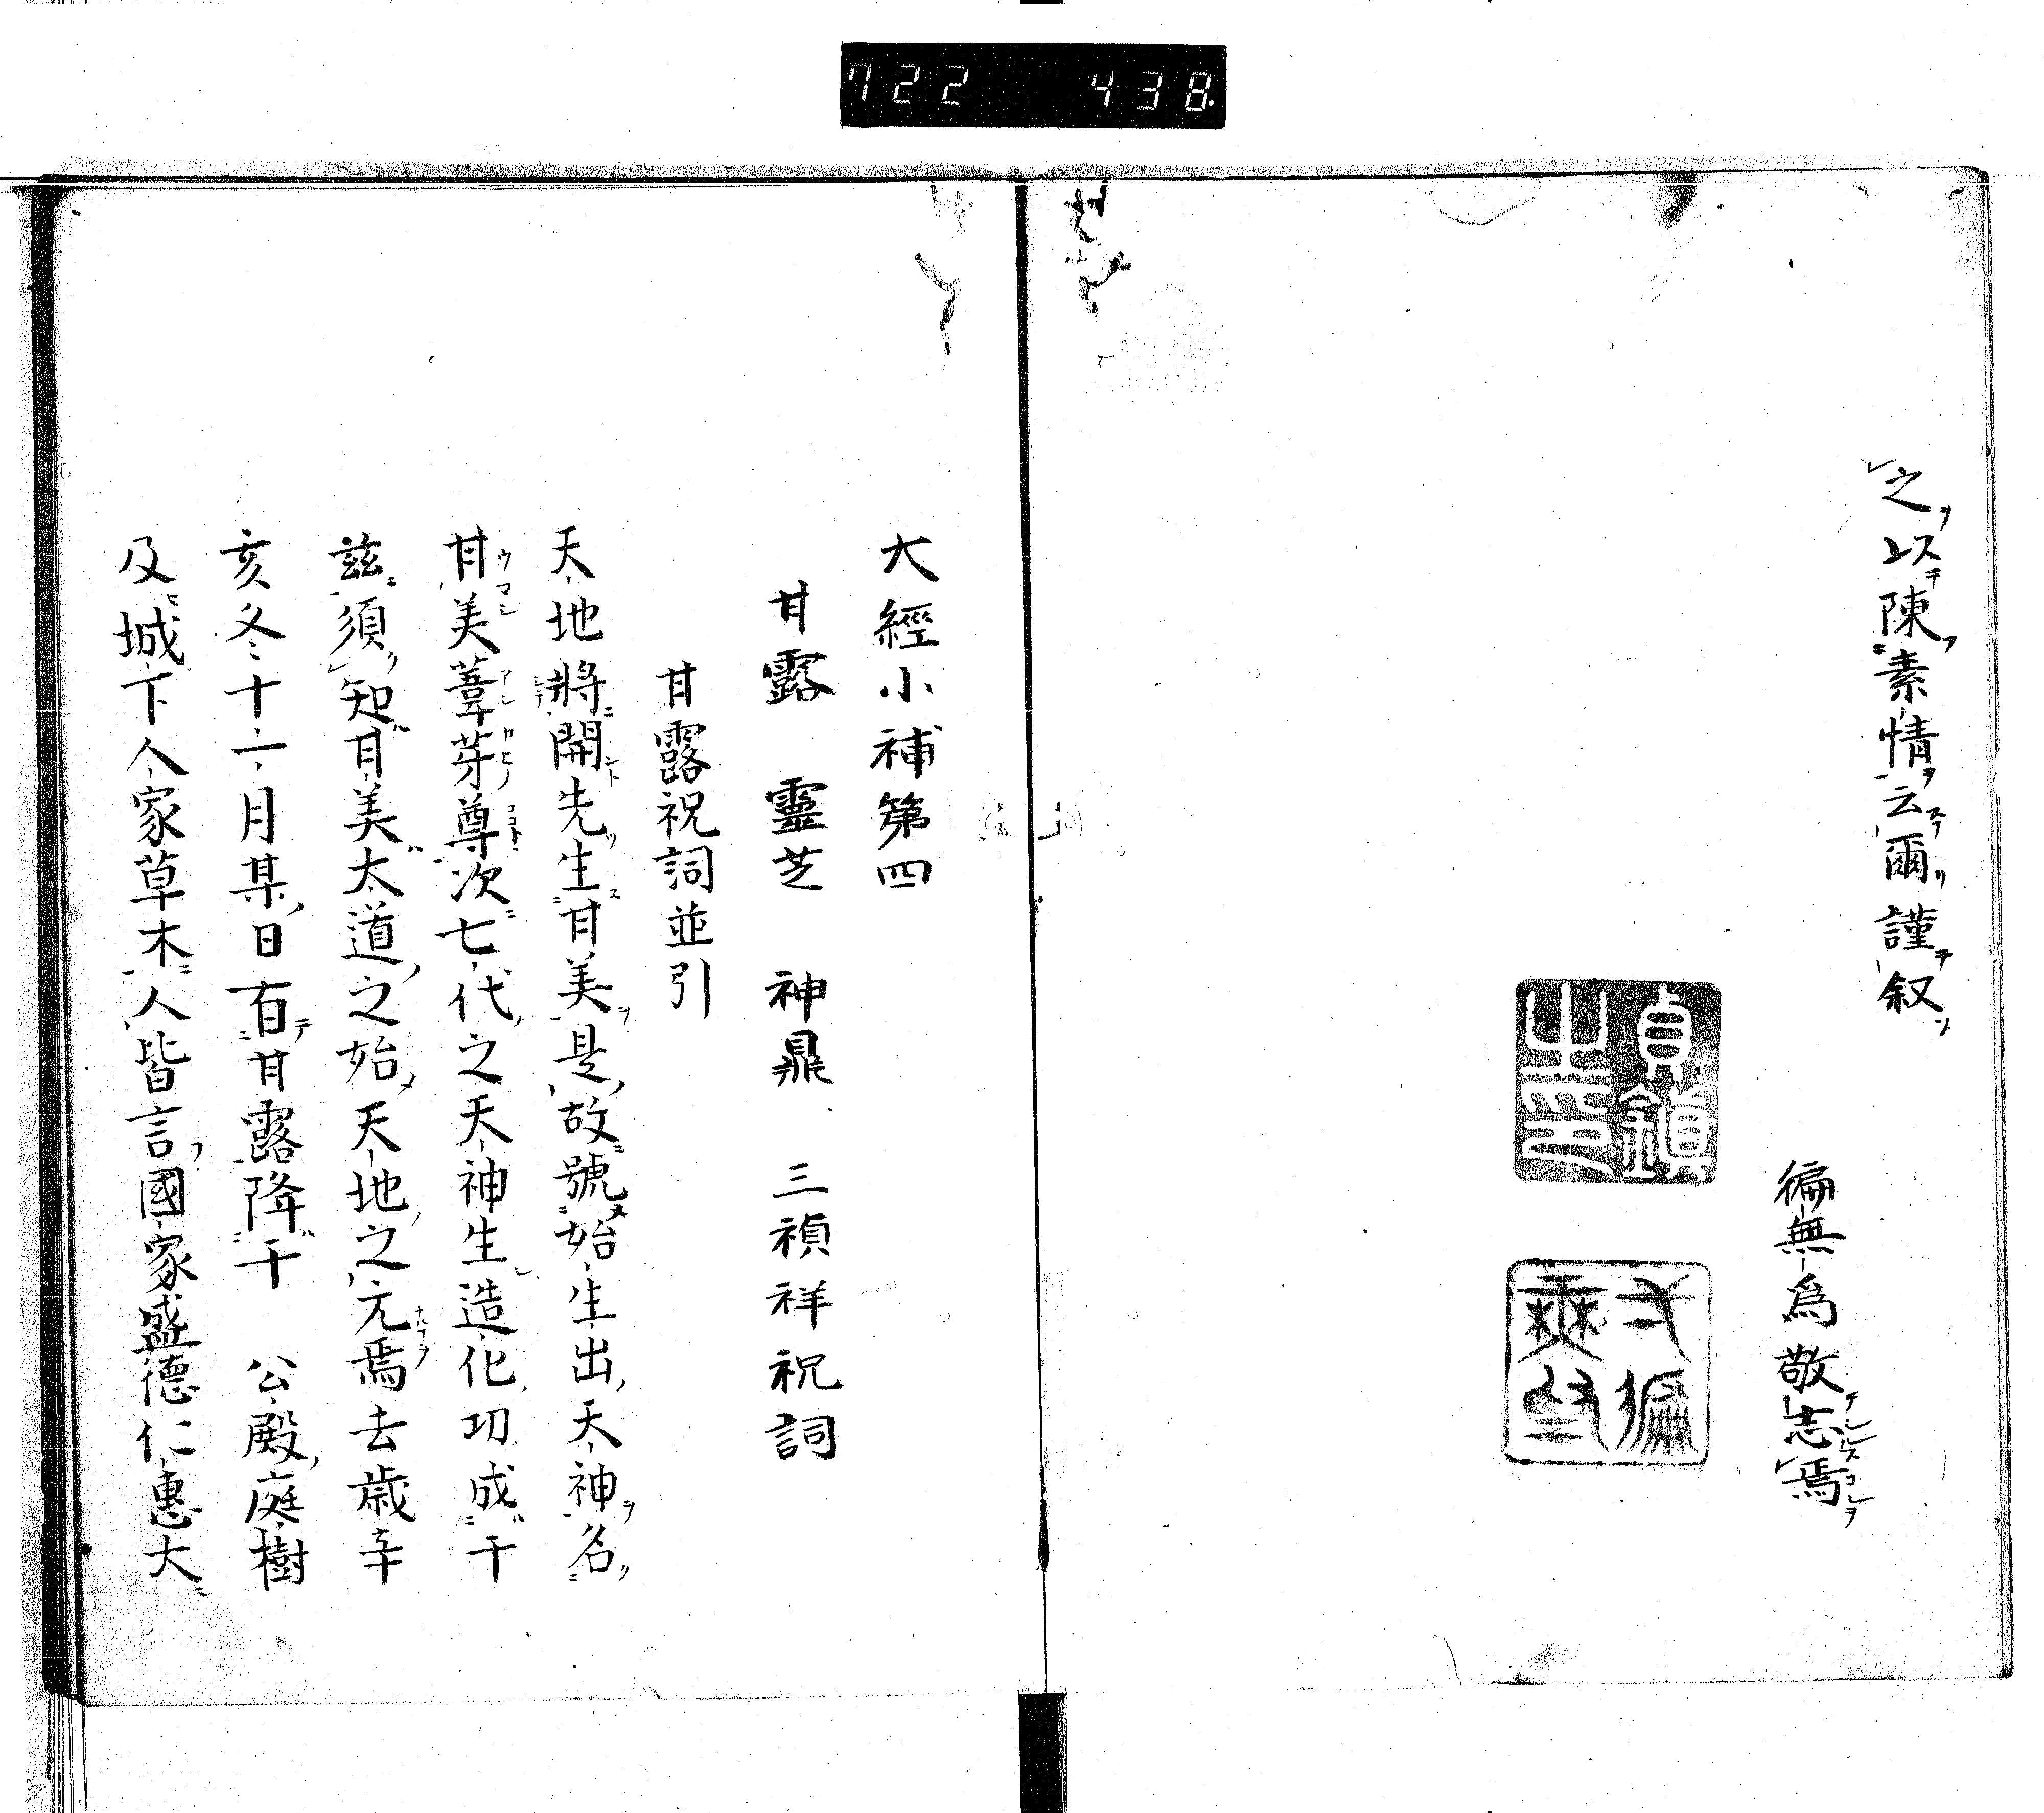 722 438
之以陳素情云爾謹叙
徧無爲敬志焉
貞鎮之印
大經小補第四
甘露 靈芝 神鼎 三禎祥祝詞
甘露祝詞並引
天地將開先生甘美是故號始生出天神名
甘美葦芽尊次七代之天神生造化功成于
茲須知甘美太道之始天地之元焉去歲辛
亥冬十一月某日有甘露降于 公殿庭樹
及城下人家草木人皆言國家盛德仁惠大